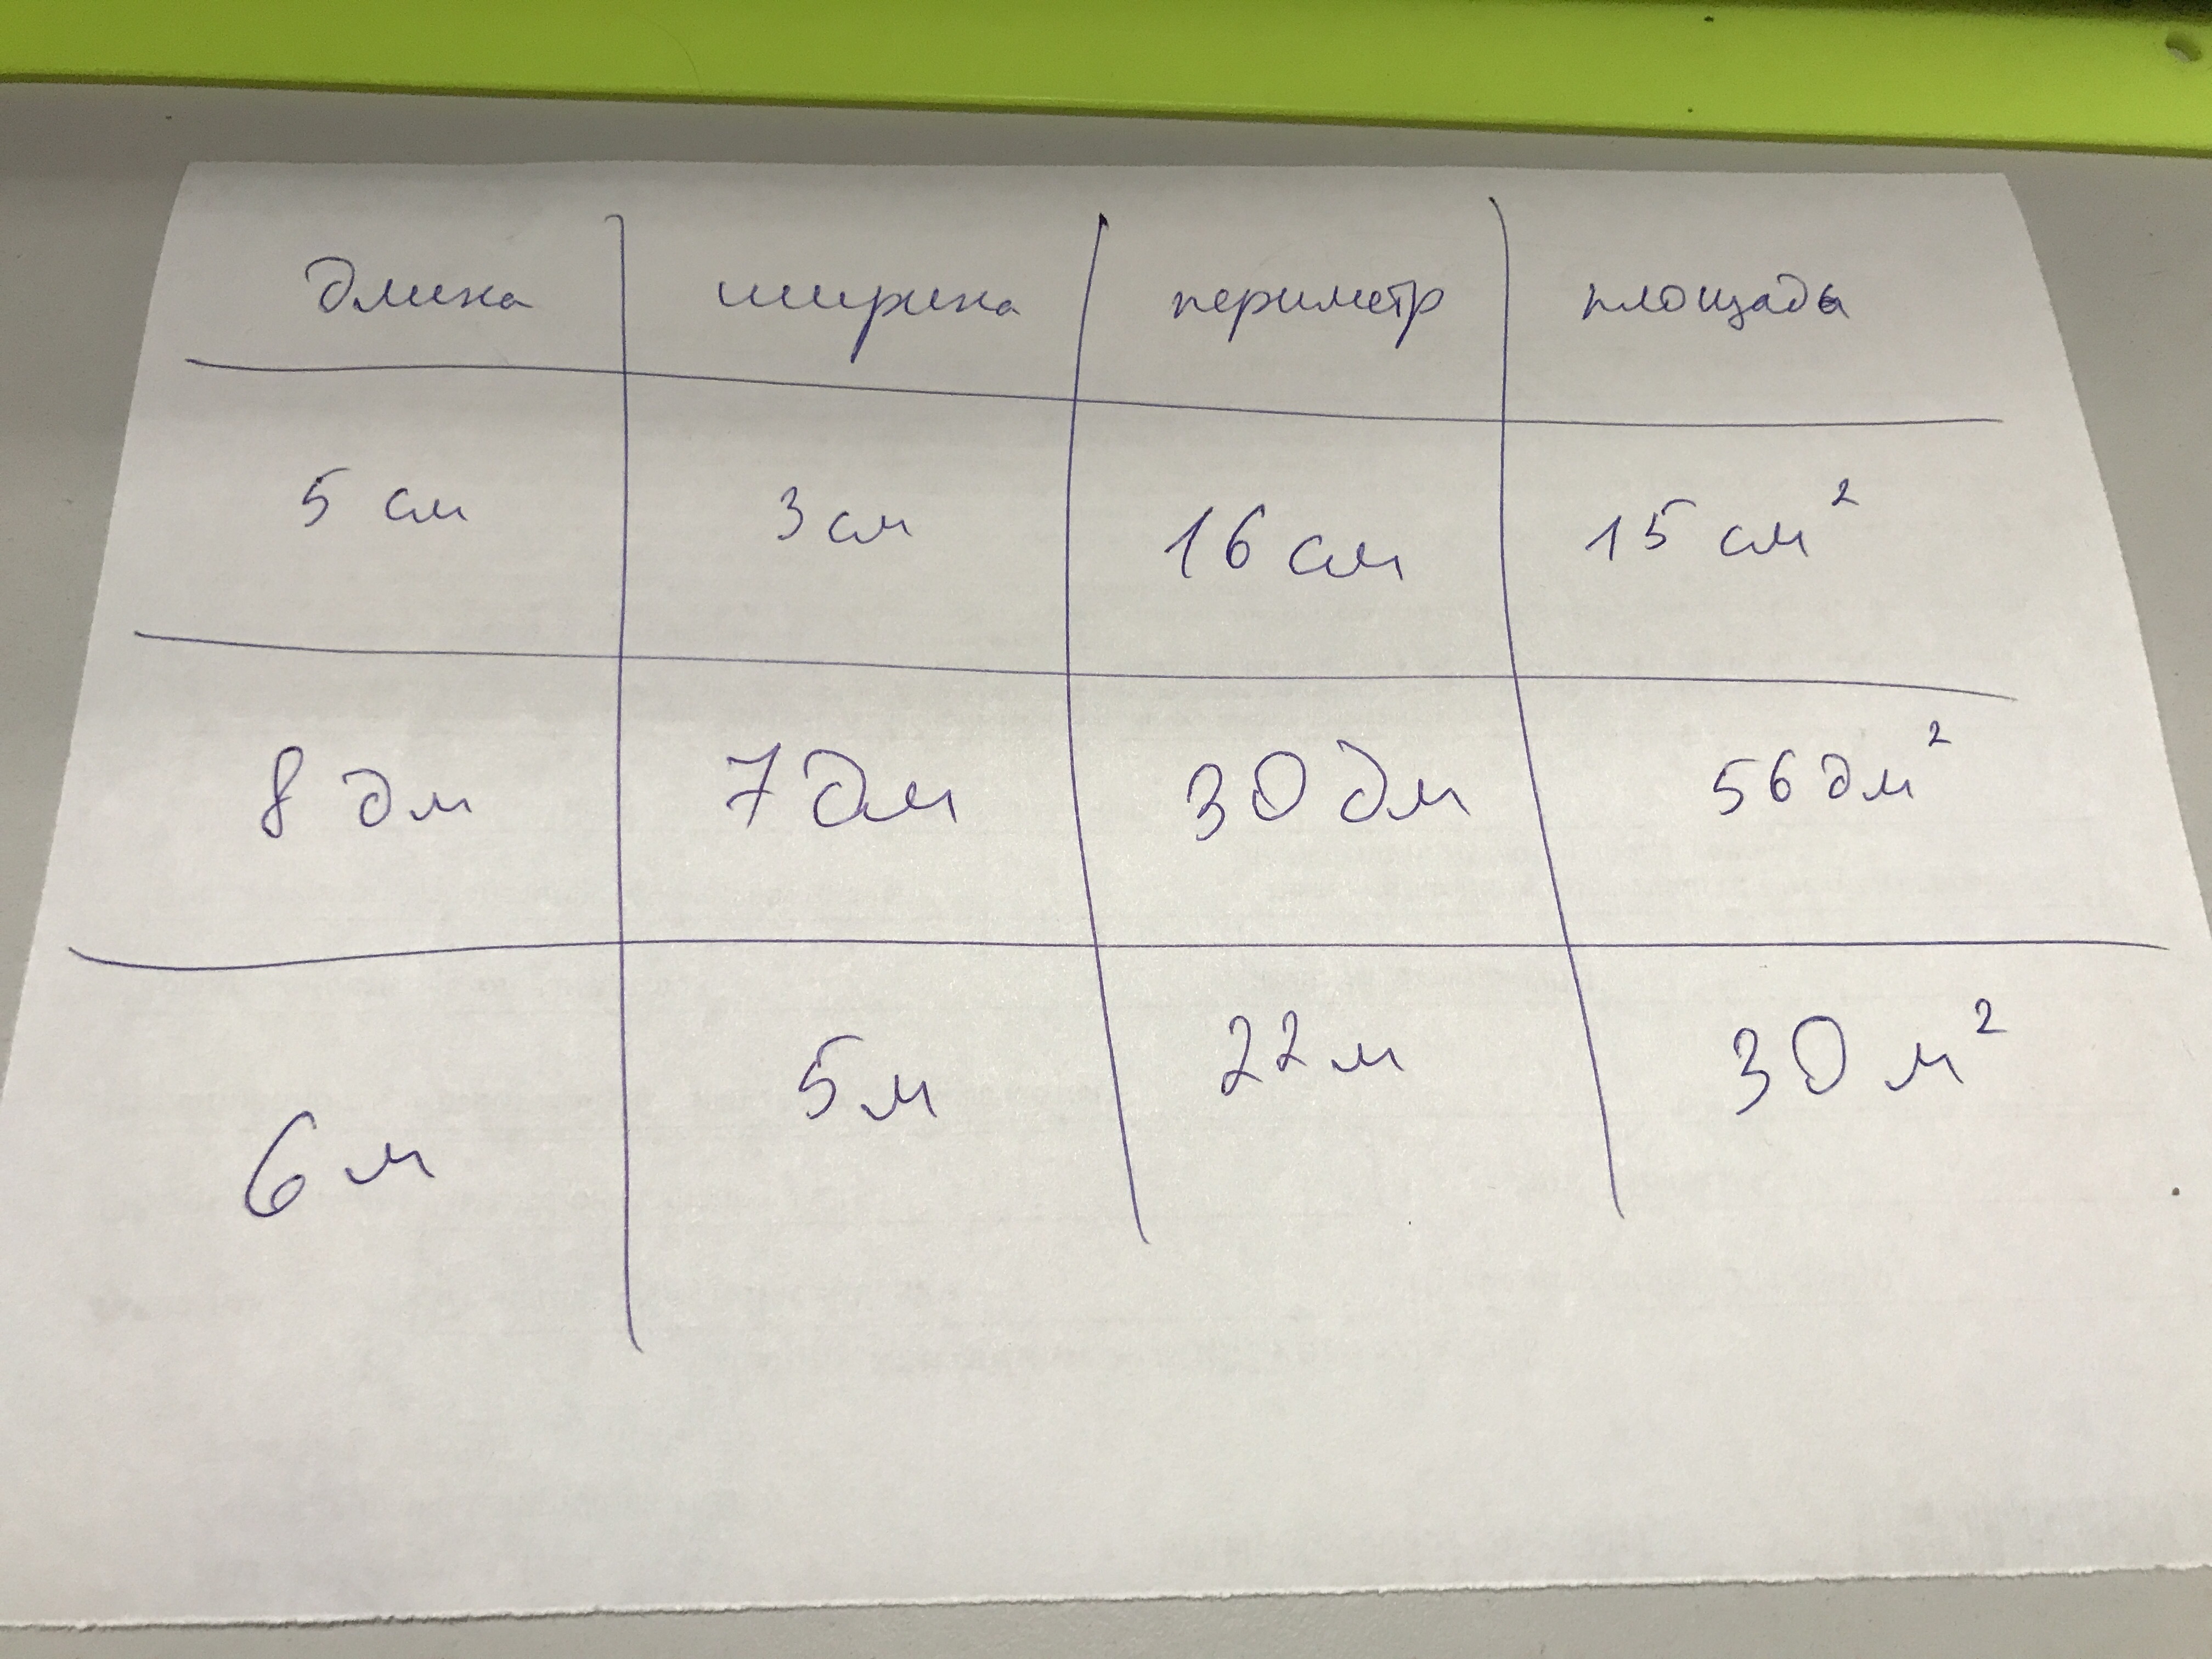 длина ширина периметр площадь
5 см 3 см 16 см 15 см²
8 дм 7 дм 30 дм 56 дм²
6 м 5 м 22 м 30 м²